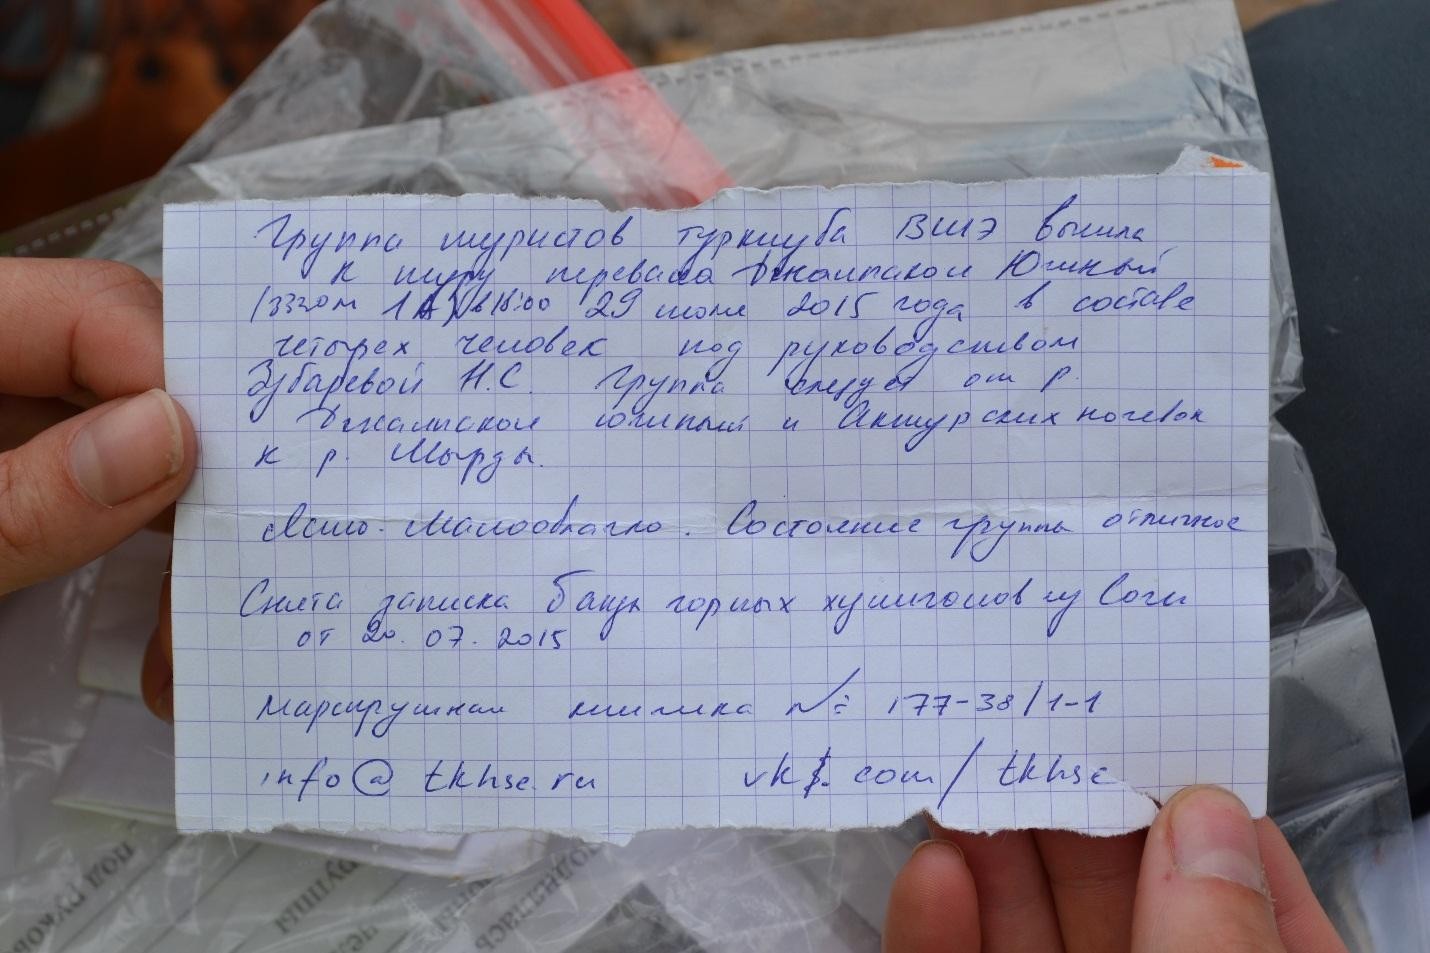 Группа туристов турклуба ВШЭ вышла
к туру перевала Джалпакол Южный
1А) в 16:00 29 июля 2015 года в составе
четырех человек под руководством
Зубаревой Н.С. Группа следует от р.
Джалпакол южный и Актурских ночевок
к р. Мырды.
Ясно. Малооблачно. Состояние группы отличное
Снята записка банды горных хулиганов из Сочи
от 20.07.2015
Маршрутная книжка №: 177-38/1-1
info@tkhse.ru vk.com/tkhse